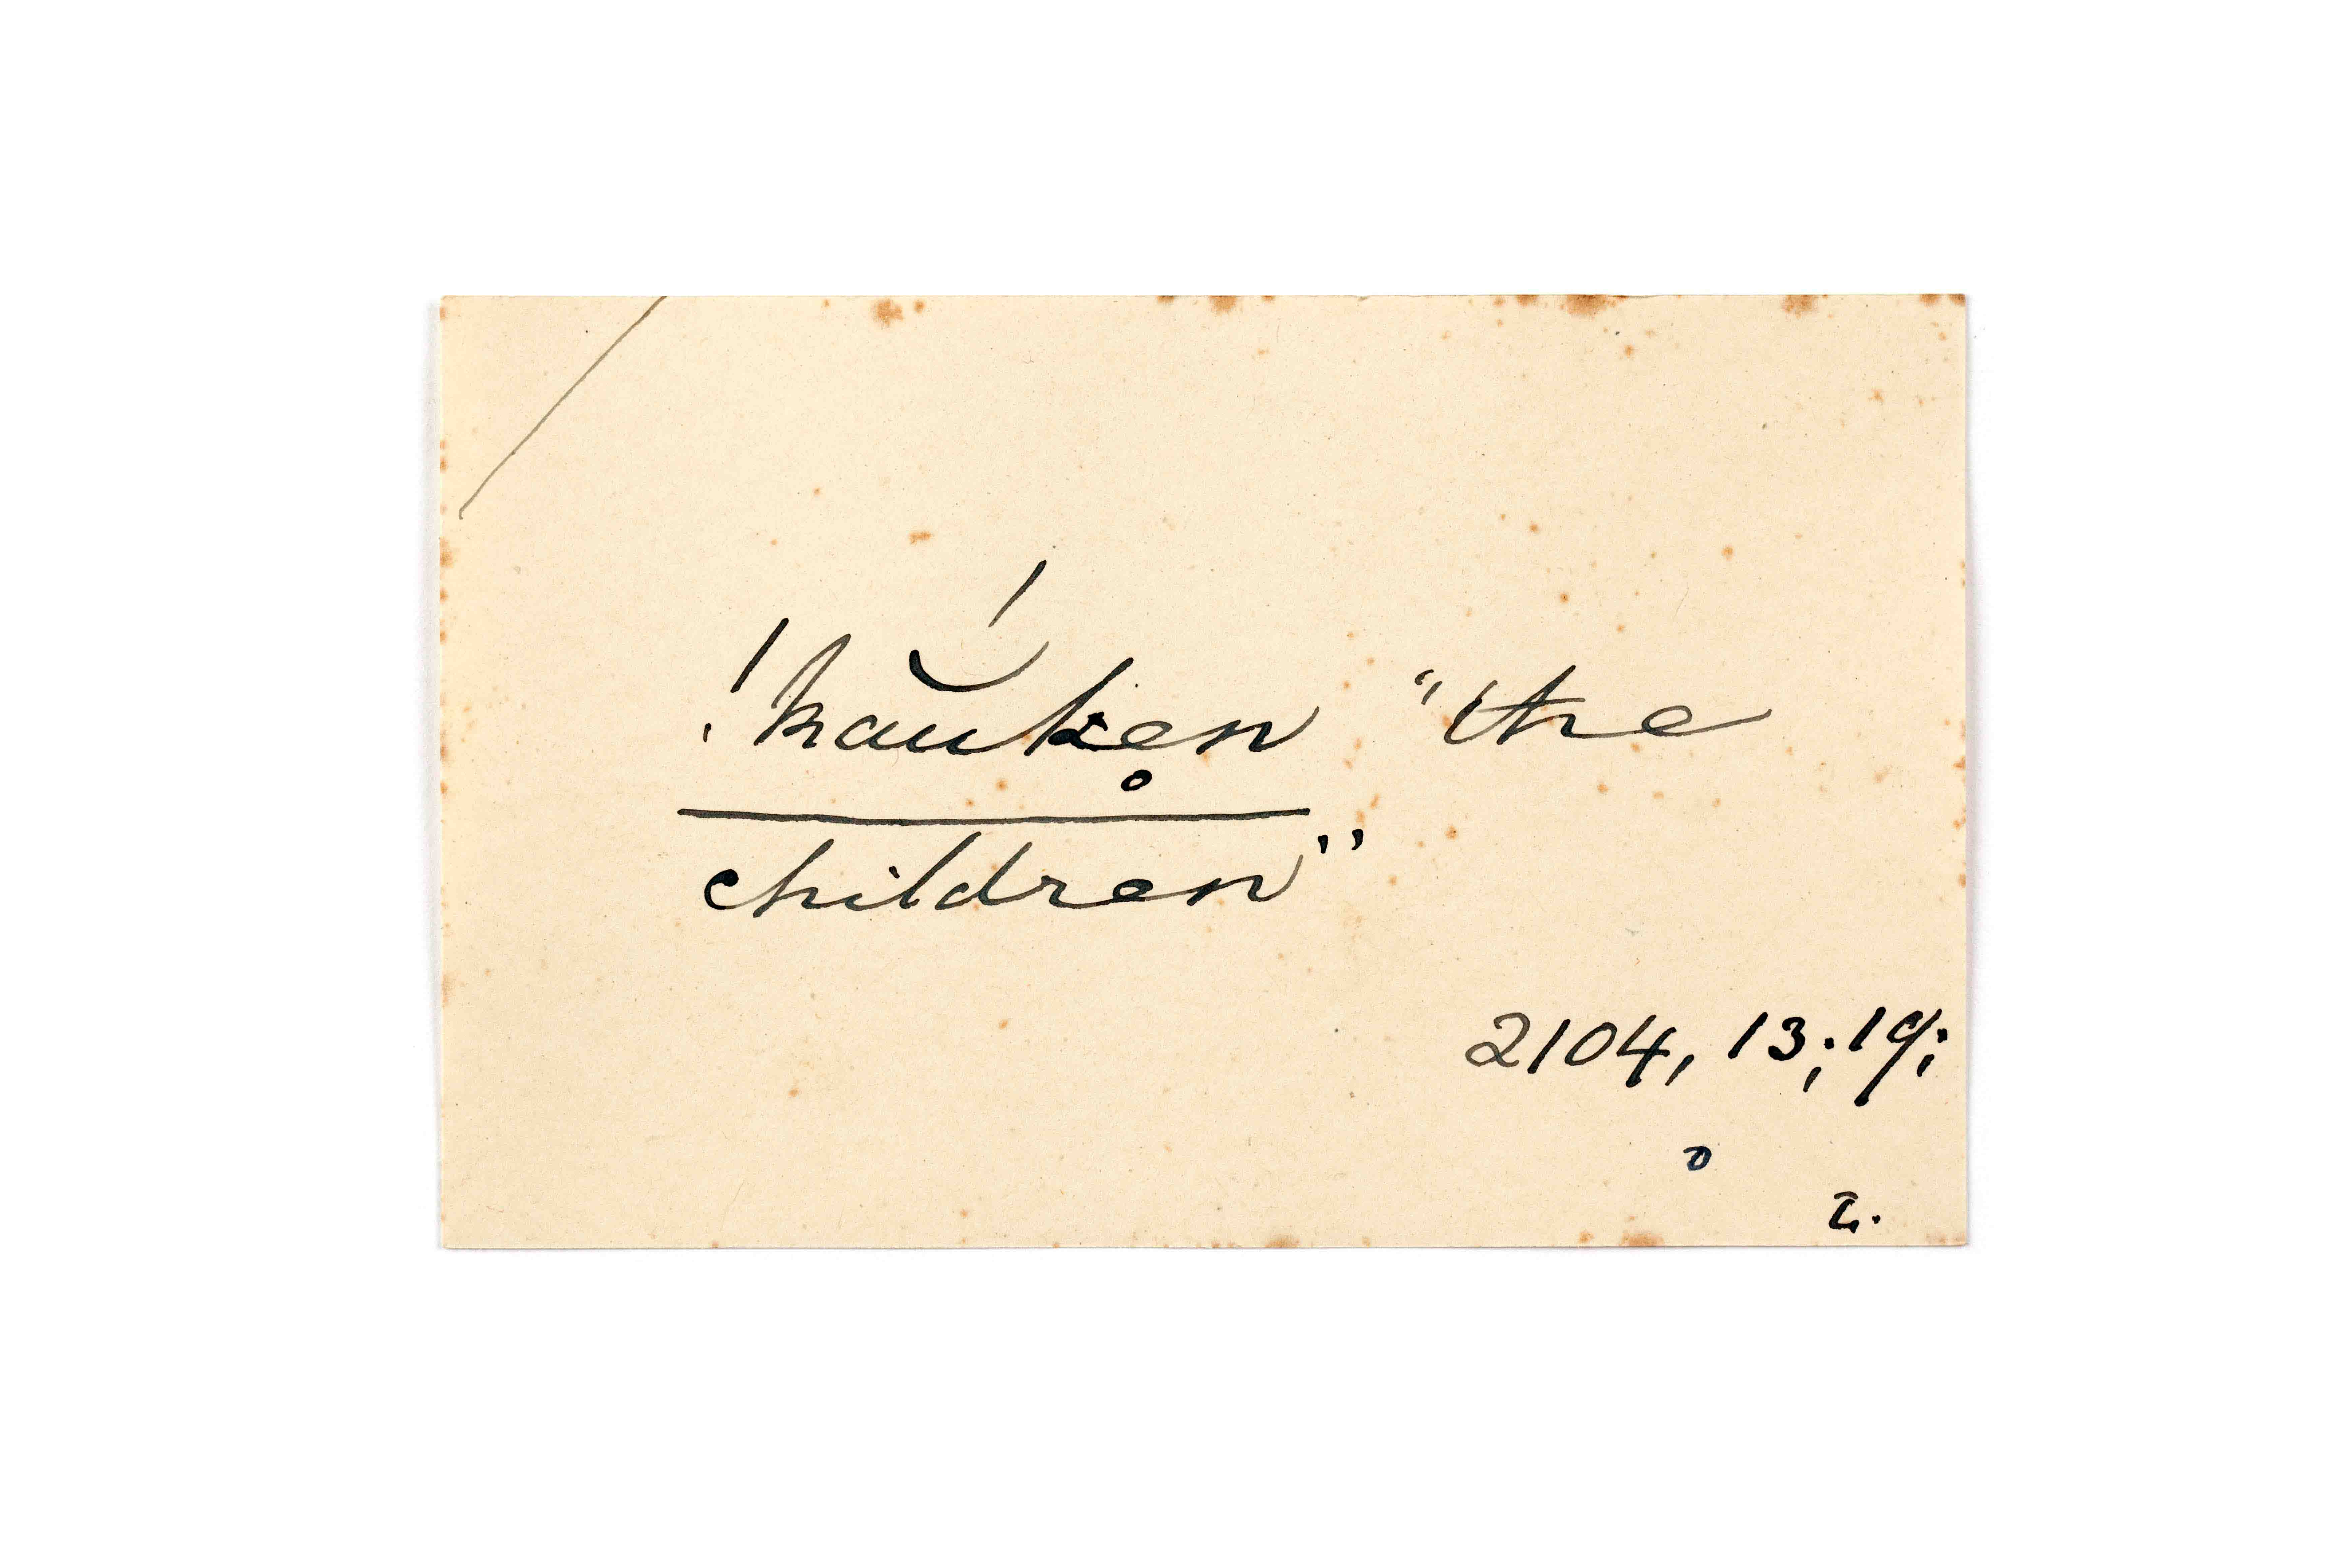 !kău̍ke̥n "the
children"
2104, 13; 19;
o
2.